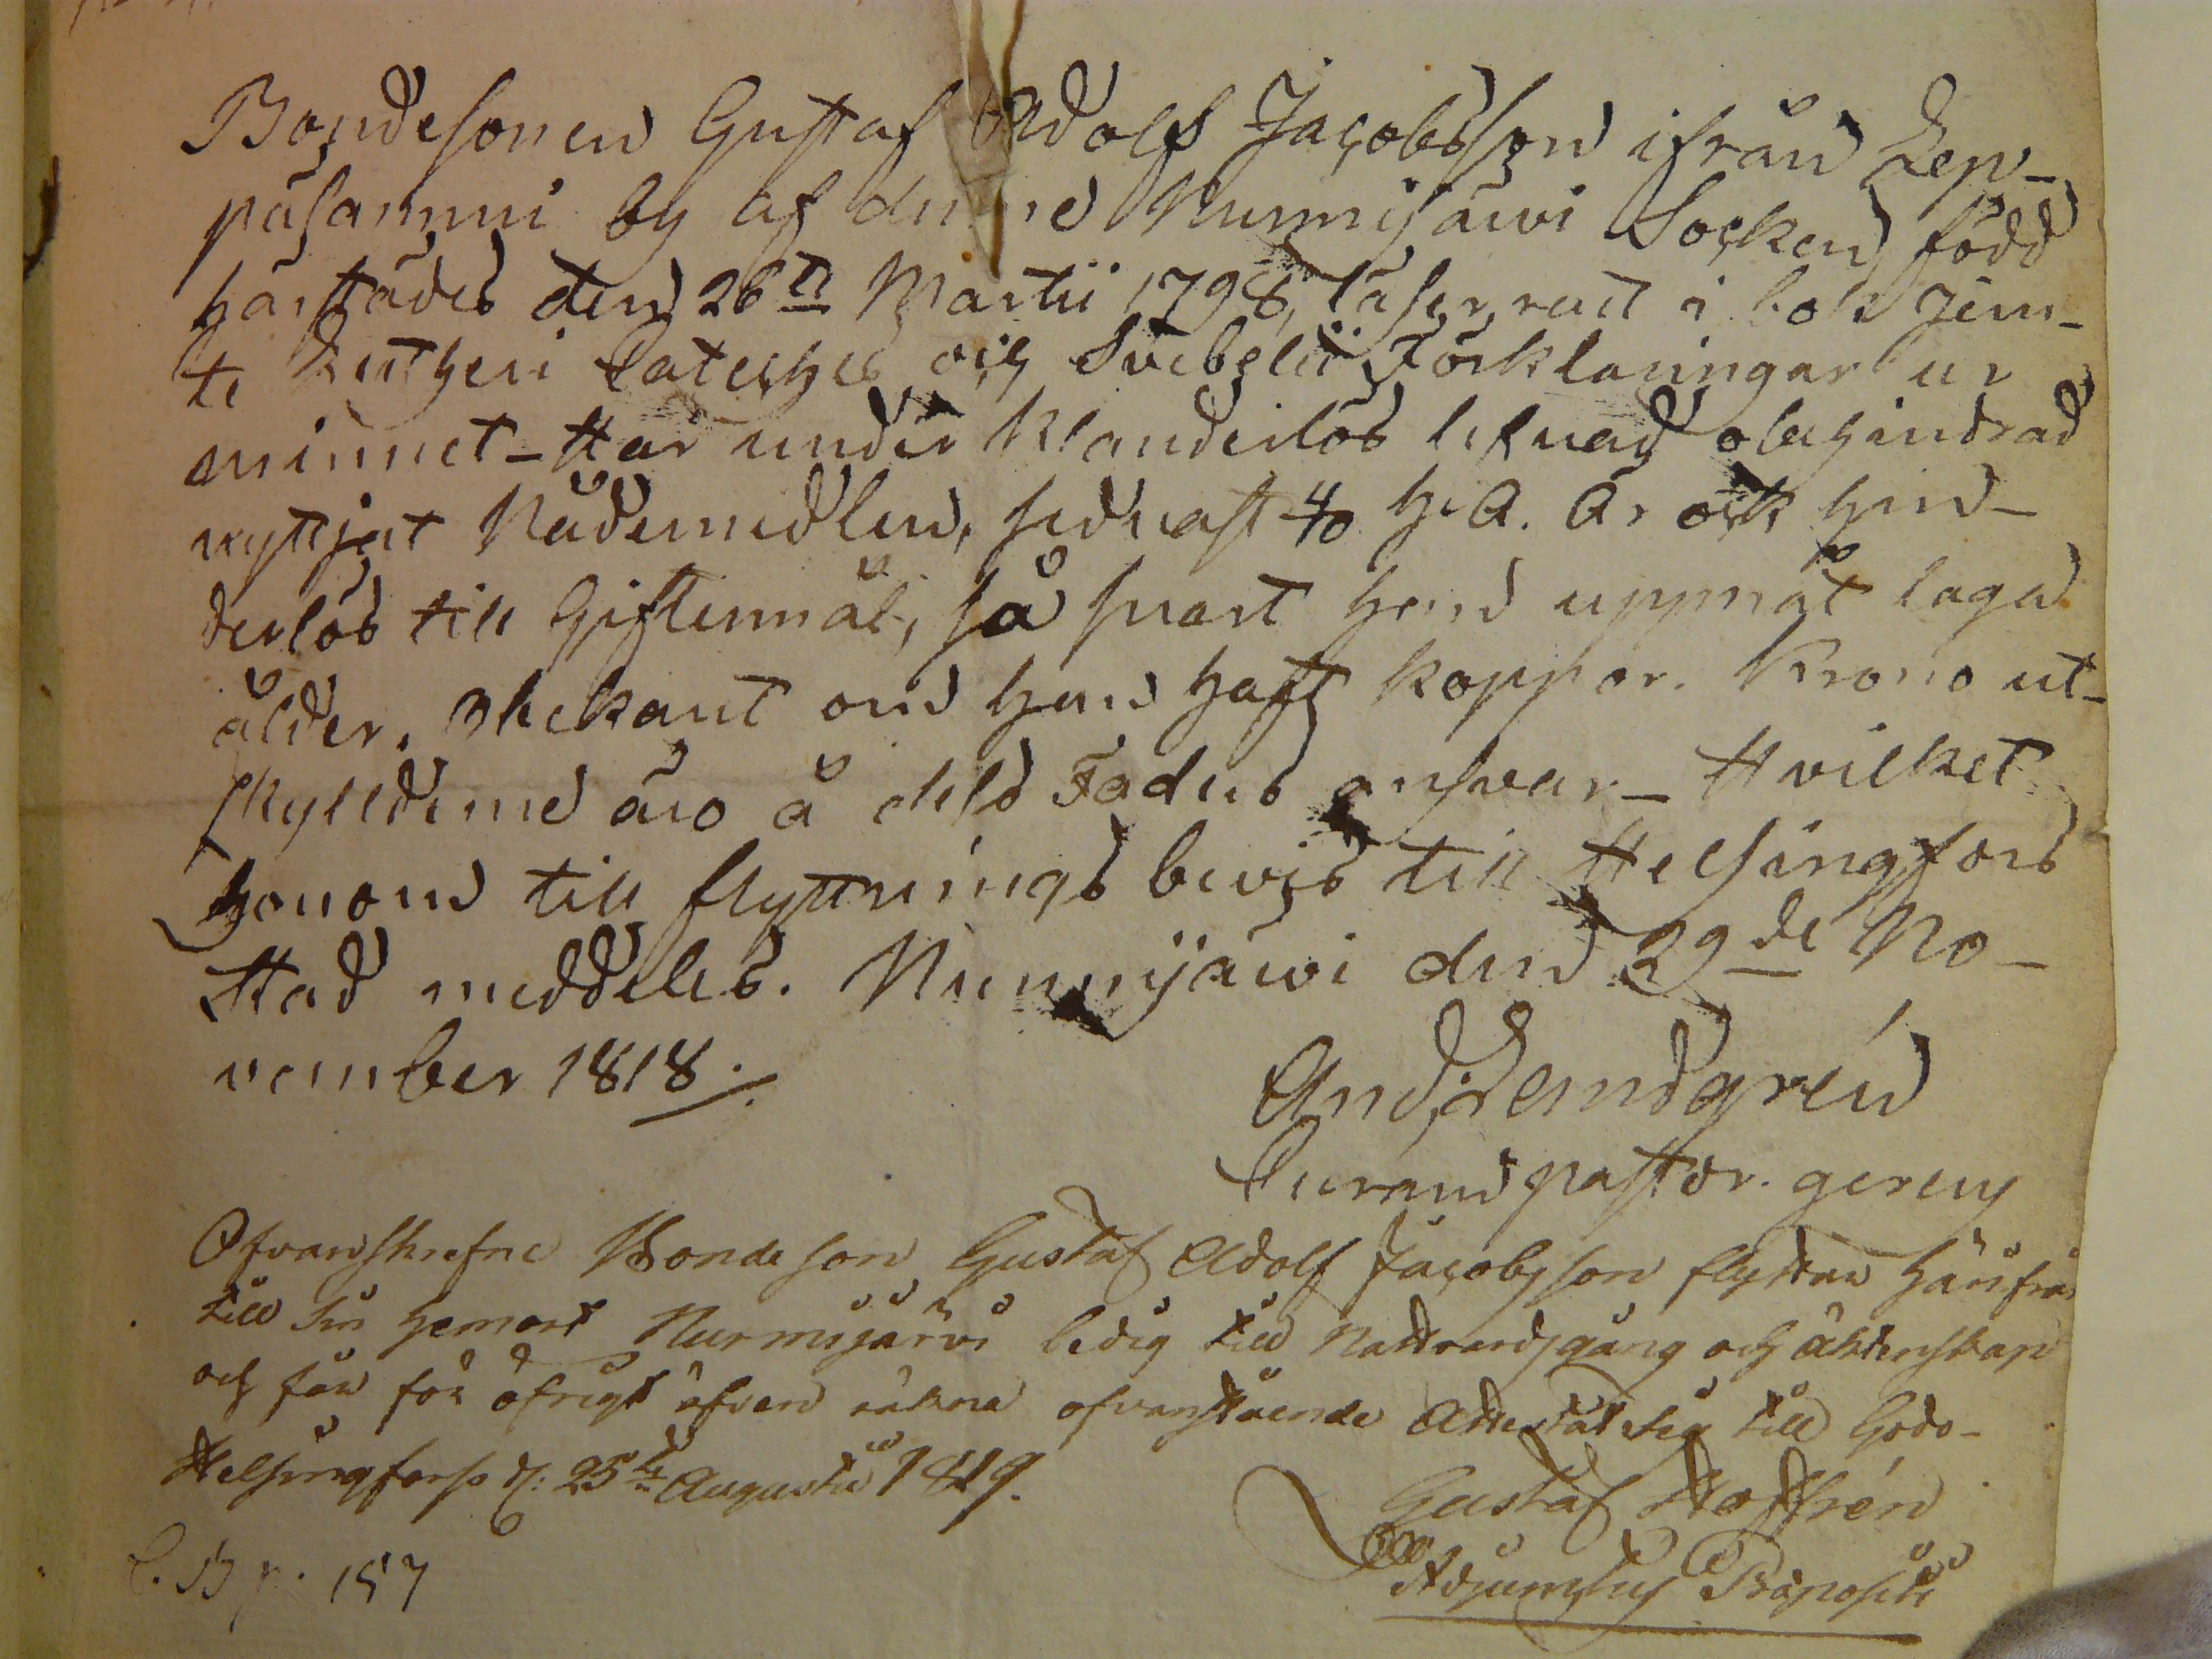 Bondesonen Gustaf Adolf Jacobsson ifrån Lep-
päsammi by af denne Nurmijärvi Socken, född
härstädes den 26te Martii 1798, läser rätt i bok jem-
te Lutheri Cateches och Svebelii Förklaringar ur
minnet_ Har under klanderlös lefnad obehindrad
nyttjat Nådemedlen, sednast 4/10 h. a. Är ock hin-
derlös till Giftermål, så snart han uppnåt laga
ålder. Obekant om han haft koppor. Krono ut-
skyllderne äro å dess Faders ansvar_ Hvilket
honom till flyttnings bevis till Helsingfors
Stad meddeles. Nurmijärvi den 29de No-
vember 1818.
And. Landgrén
Curam pastor. gerens
Ofvanskrefne Bondeson Gustaf Adolf Jacobsson flyttar härifrån
till sin hemort Nurmijärvi ledig till Nattvardsgång och äktenskap
och får för öfrigt äfven räkna ofvanstående Attestat sig till Godo_
Helsingfors d: 25te Augusti 1819.
Gustaf Hoffrén
Adjunctus Præpositi
C. B p. 157